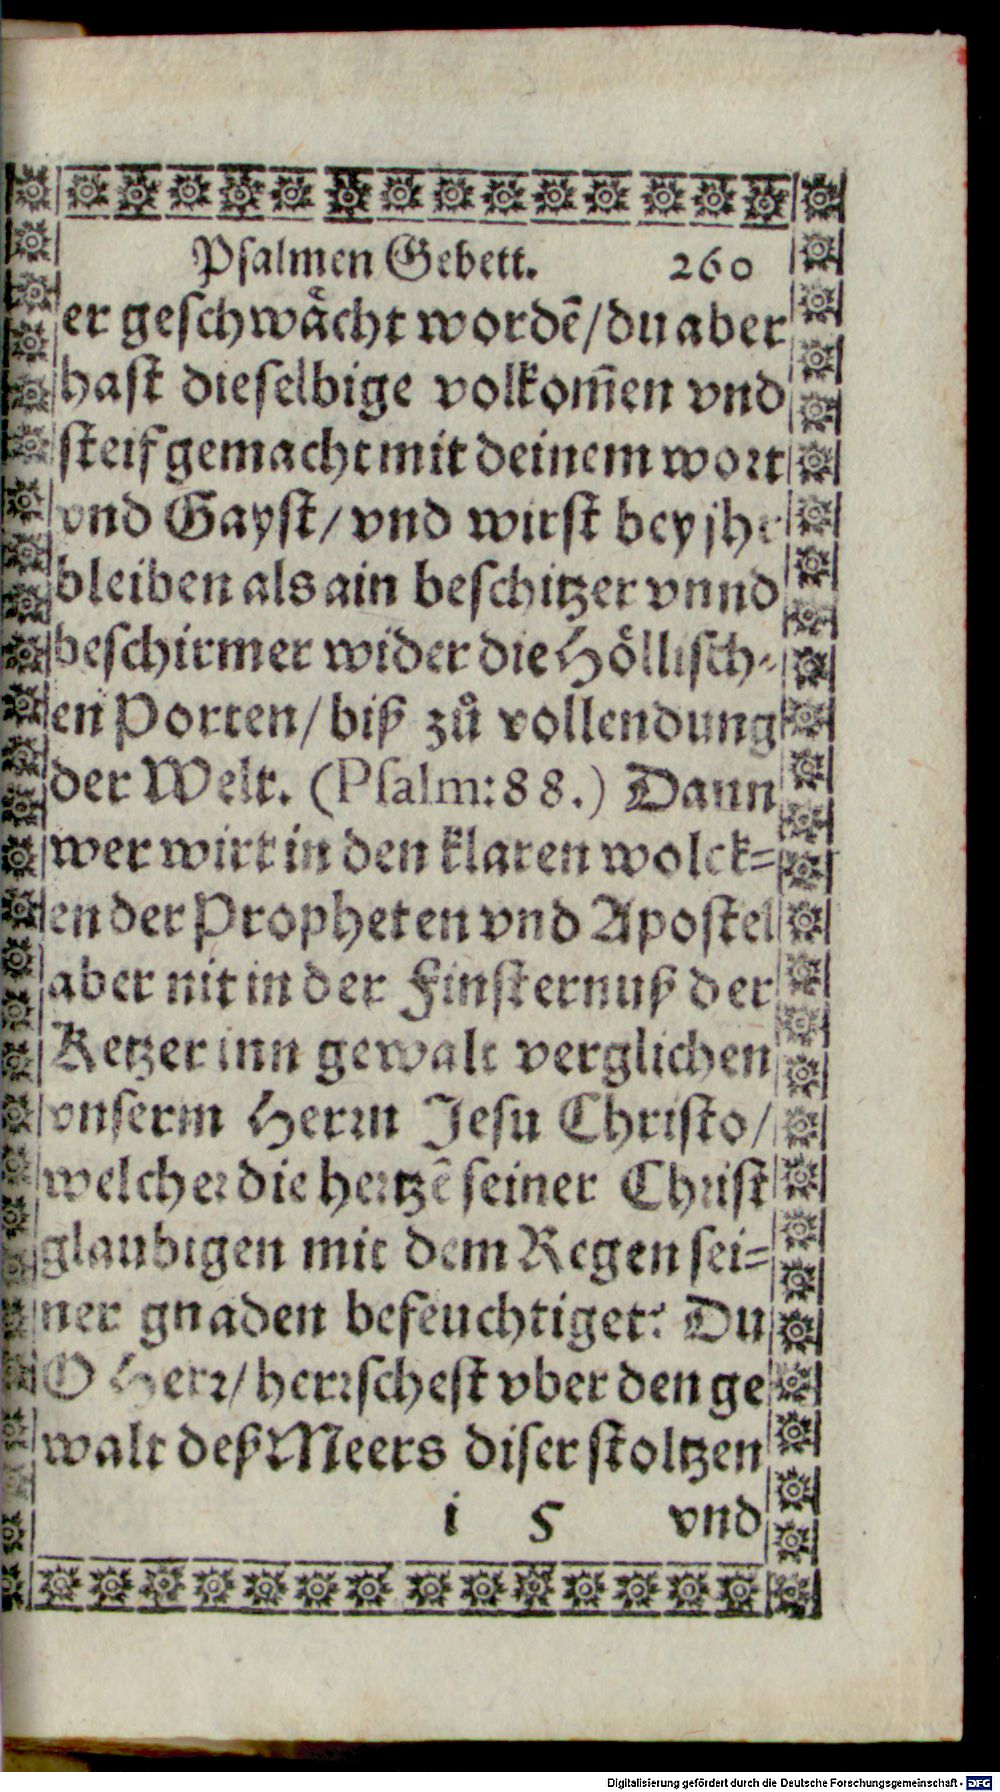 Psalmen Gebett. 260
er geschwåcht wordē/du aber
hast dieselbige volkom̃en vnd
steif gemacht mit deinem wort
vnd Gayst/ vnd wirst bey jhr
bleiben als ain beschitzer vnnd
beschirmer wider die Hőllisch-
en Porten/ biß zů vollendung
der Welt. (Psalm: 88.) Dann
wer wirt in den klaren wolck=
en der Propheten vnd Apostel
aber nit in der Finsternuß der
Ketzer inn gewalt verglichen
vnserm Herrn Jesu Christo/
welcher die hertzē seiner Christ
glaubigen mit dem Regen sei=
ner gnaden befeuchtiget: Du
O Herr/ herrschest vber den ge
walt deß Meers diser stoltzen
i 5 vnd
Digitalisierung gefördert durch die Deutsche Forschungsgemeinschaft - DFG